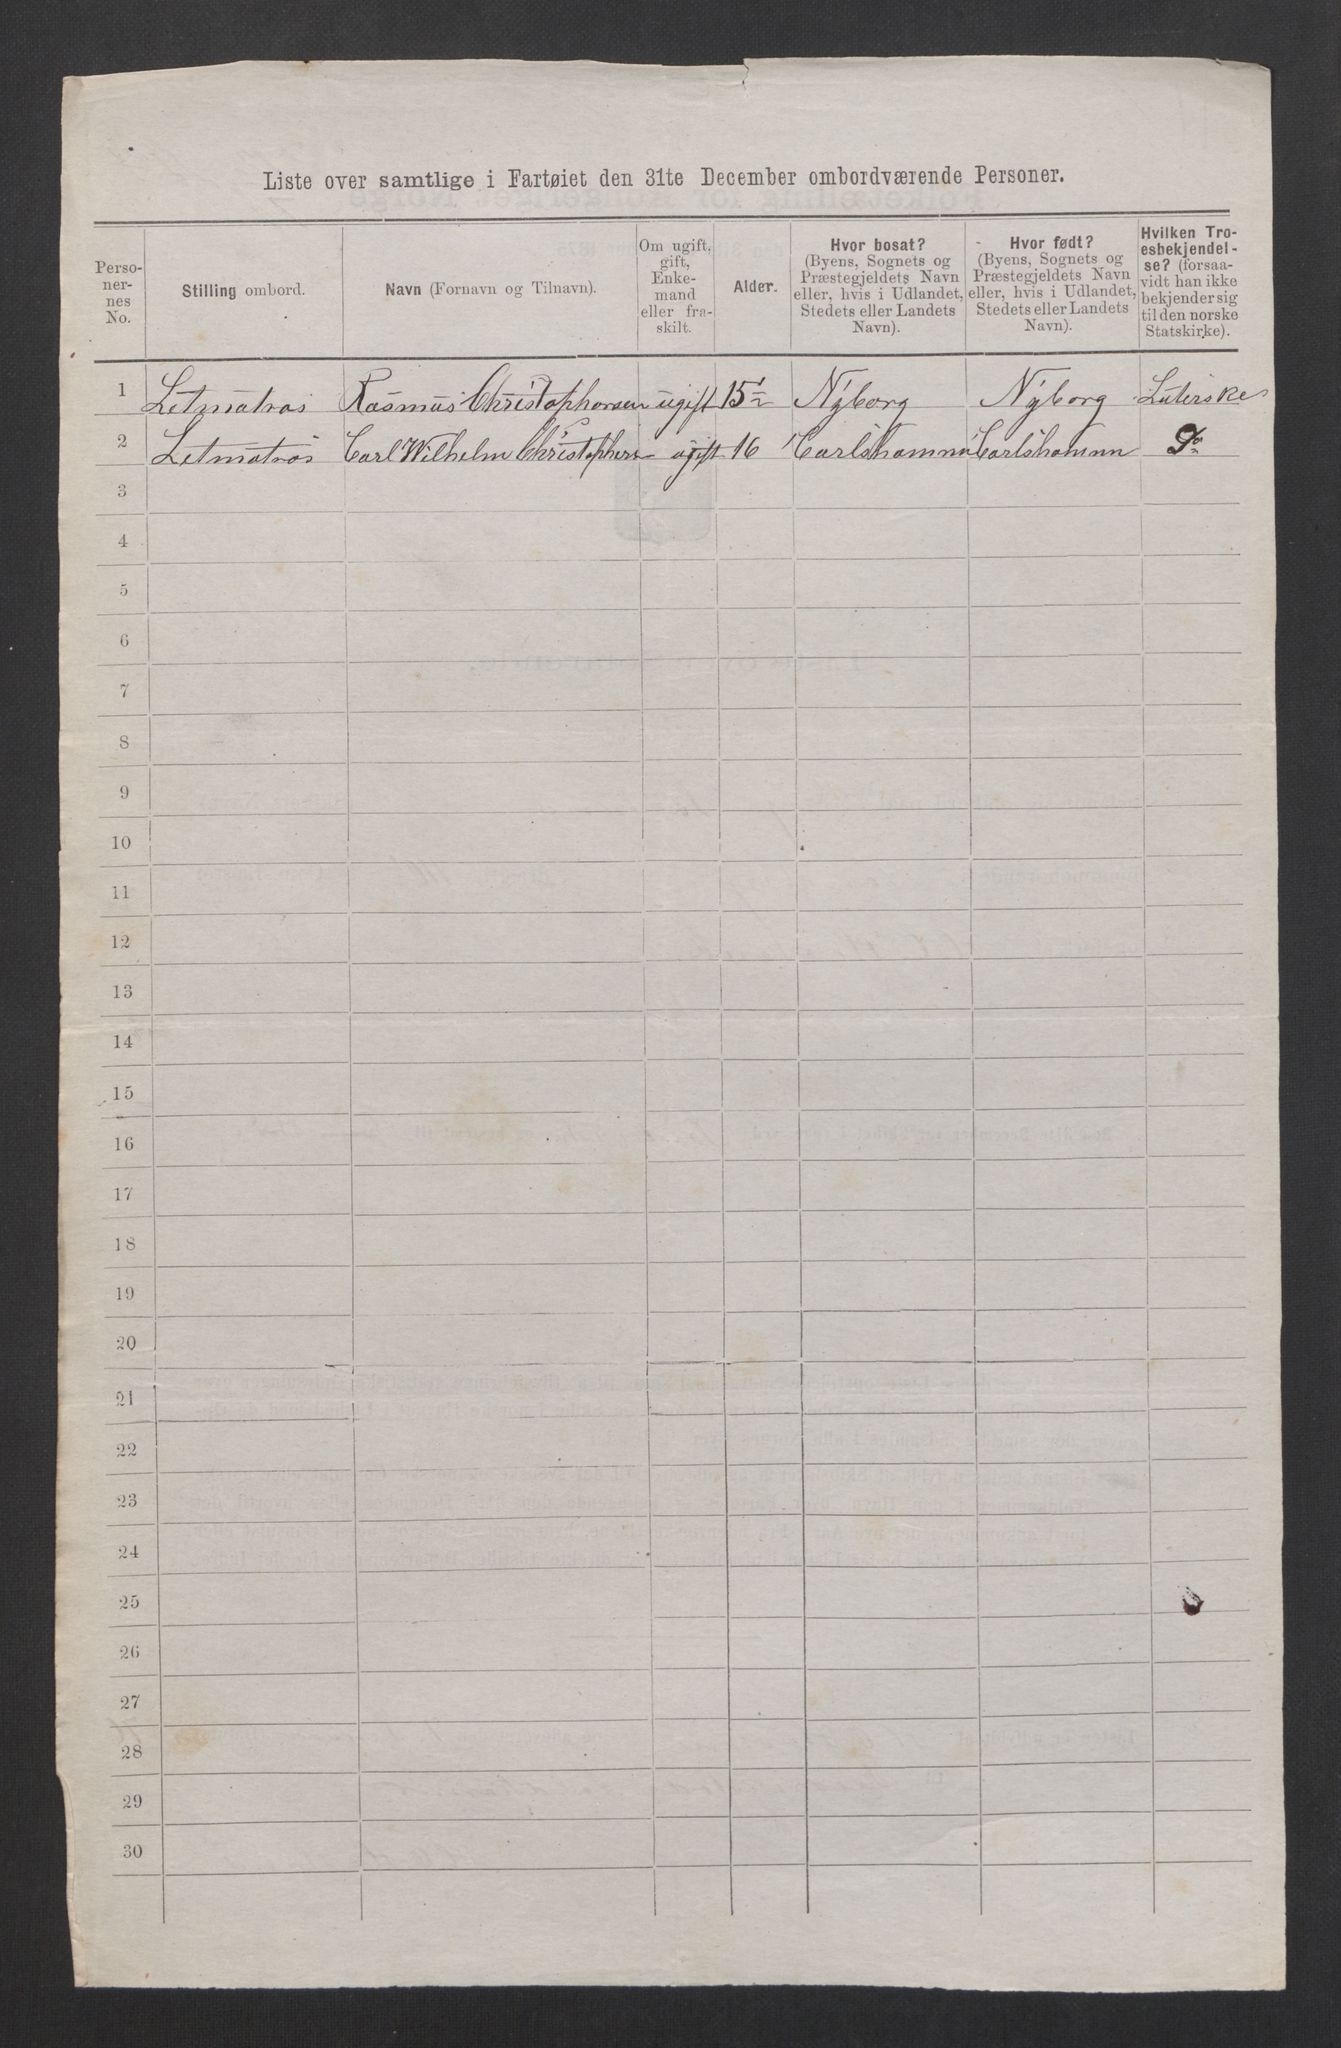 Liste over samtlige i Fartøiet den 31te December ombordværende Personer.
Perso-
ner-
nes
No.
Stilling ombord.
Navn (Fornavn og Tilnavn).
Om ugift,
gift,
Enke-
mand
eller fra-
skilt.
Alder.
Hvor bosat?
(Byens, Sognets og
Præstegjeldets Navn
eller, hvis i Udlandet,
Stedets eller Landets
Navn).
Hvor født?
(Byens, Sognets og
Præstegjeldets Navn
eller, hvis i Udlandet,
Stedets eller Landets
Navn).
Hvilken Tro-
esbekjendel-
se? (forsaa-
vidt han ikke
bekjender sig
til den norske
Statskirke).
1 Letmatros Rasmus Christophersen ugift 15½ Nÿborg Nÿborg Luterske
2 Letmatros Carl Wilhelm Christophers ugift 16 Carlshamn Carlshamn Do
3
4
5
6
7
8
9
10
11
12
13
14
15
16
17
18
19
20
21
22
23
24
25
26
27
28
29
30